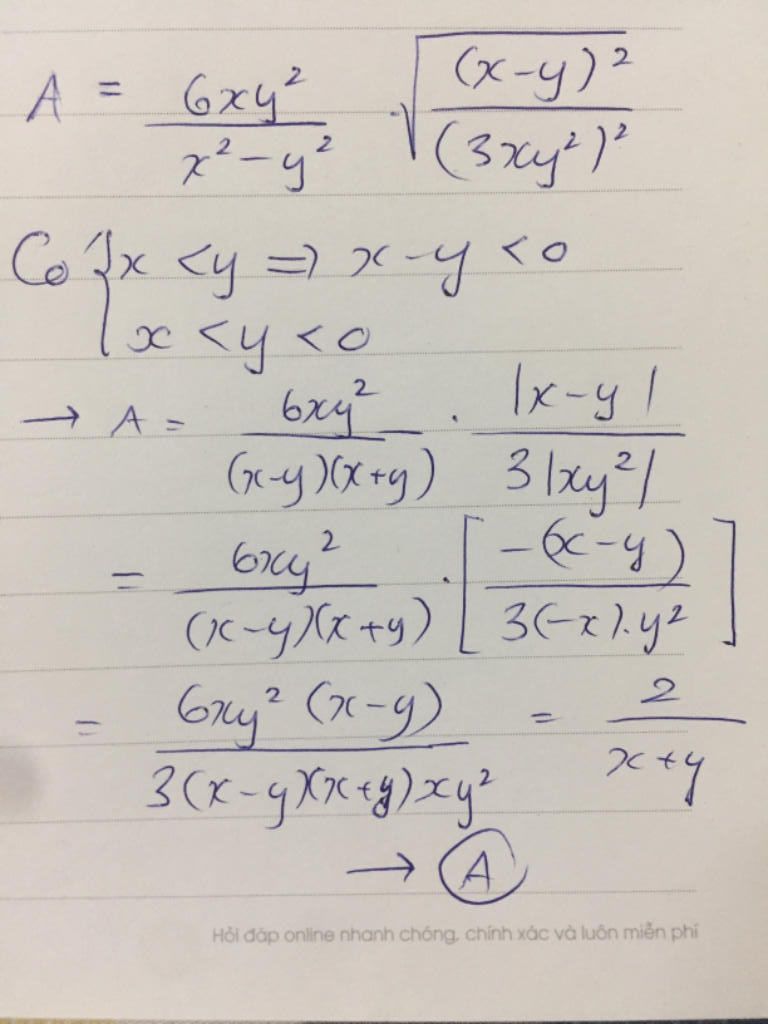 A = \frac{6xy^2}{x^2-y^2} \cdot \sqrt{\frac{(x-y)^2}{(3xy^2)^2}}
Có \begin{cases} x < y \Rightarrow x-y < 0 \\ x < y < 0 \end{cases}
\rightarrow A = \frac{6xy^2}{(x-y)(x+y)} \cdot \frac{|x-y|}{3|xy^2|}
= \frac{6xy^2}{(x-y)(x+y)} \cdot \left[\frac{-(x-y)}{3(-x).y^2}\right]
= \frac{6xy^2(x-y)}{3(x-y)(x+y)xy^2} = \frac{2}{x+y}
\rightarrow Ⓐ
Hỏi đáp online nhanh chóng, chính xác và luôn miễn phí